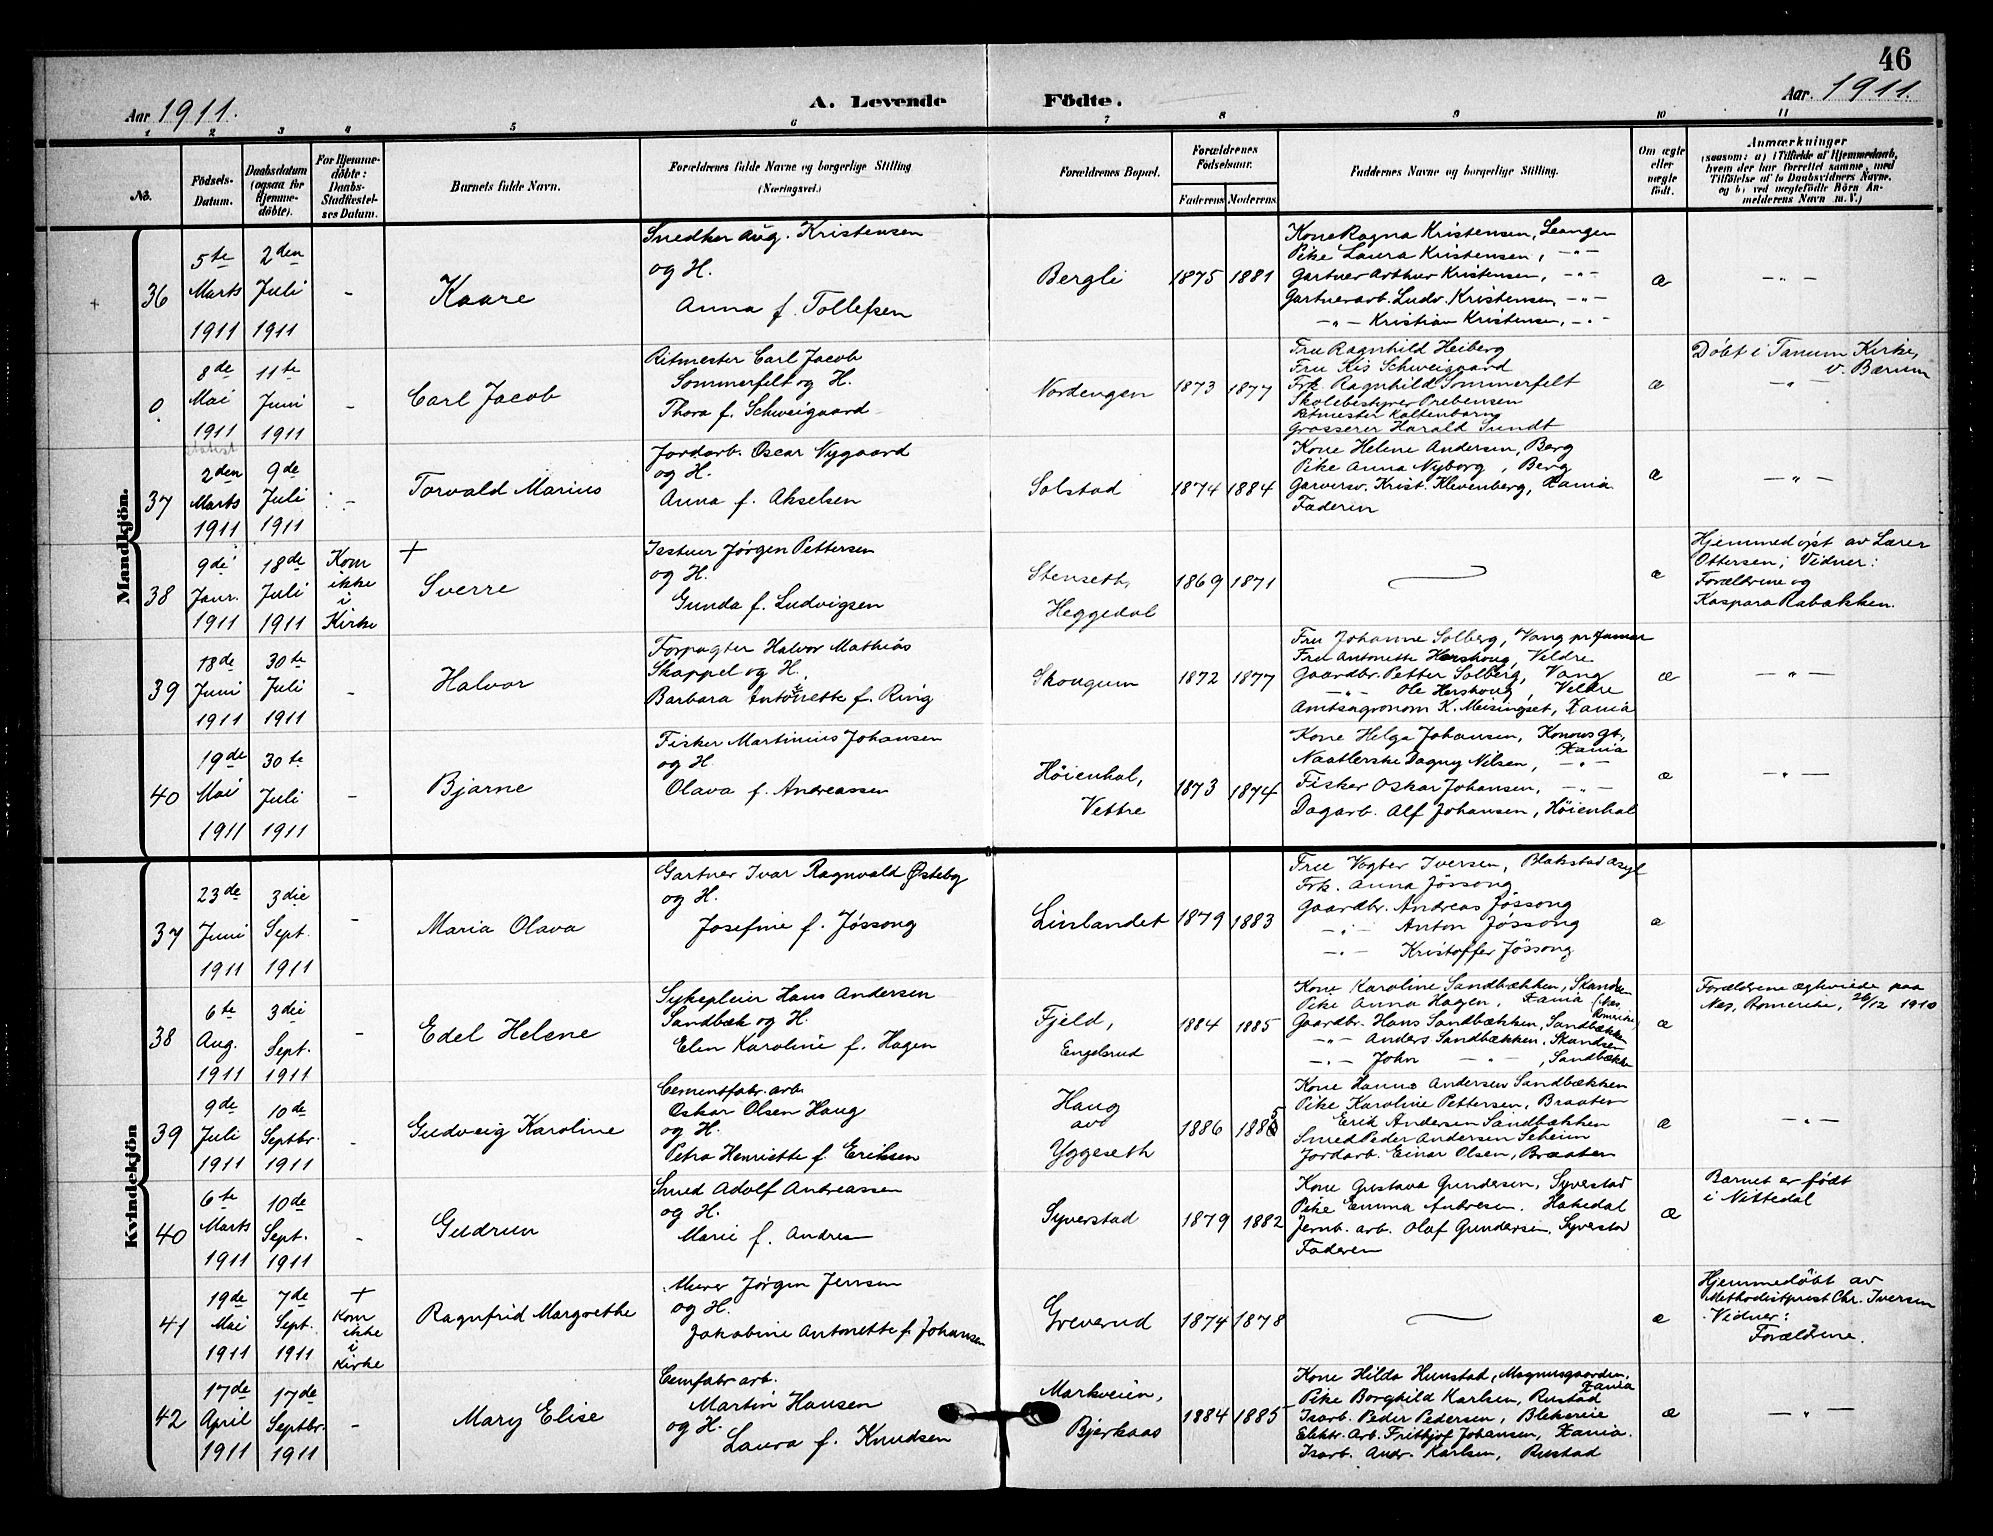 46
Aar 1911.
A. Levende
Fødte.
Aar. 1911.
1 2 3 4 5 6 7 8 9 10 11
No.
Fødsels-
Datum.
Daabsdatum
(ogsaa for
Hjemme-
døbte).
For Hjemme-
døbte:
Daabs-
Stadfæstel-
ses Datum.
Barnets fulde Navn.
Forældrenes fulde Navne og borgerlige Stilling
(Næringsvei.)
Forældrenes Bopæl.
Forældrenes
Fødselsaar.
Faderens Moderens
Faddernes Navne og borgerlige Stilling.
Om ægte
eller
uægte
født.
Anmærkninger
(saasom: a) i Tilfælde af Hjemmedaab,
hvem der har forrettet samme, med
Tilføielse af to Daabsvidners Navne,
og b) ved uægtefødte Børn An-
melderens Navn m. V.)
Mandkjøn.
36
5te
Marts
1911
2den
Juli
1911
-
Kaare
Snedker Aug. Kristensen
og H.
Anna f. Tollefsen
Bergli
1875 1881
Kone Ragna Kristensen, Leangen
Pike Laura Kristensen, -"-
Gartner Arthur Kristensen, -"-
Gartnerarb. Ludv. Kristensen, -"-
-"- Kristian Kristensen, -"-
æ
-"-
0.
8de
Mai
1911
11te
Juni
1911
-
Carl Jacob
Ritmester Carl Jacob
Sommerfelt og H.
Thora f. Schweigaard
Nordengen
1873 1877
Fru Ragnhild Heiberg
Fru Kis Schweigaard
Frk. Ragnhild Sommerfelt
Skolebestyrer Prebensen
Ritmester Kaltenborn
Grosserer Harald Sundt
æ
Døbt i Tanum Kirke,
v. Bærum
-"-
37
2den
Marts
1911
9de
Juli
1911
-
Torvald Marius
Jordarb. Oscar Nygaard
og H.
Anna f. Akselsen
Solstad
1874 1884
Kone Helene Andersen, Berg
Pike Anna Nyborg, Berg
Garversv. Krist. Klevenberg, Xania
Faderen
æ
-"-
38
9de
Janr.
1911
18de
Juli
1911
Kom
ikke
i
Kirke
+
Sverre
Isstuer Jørgen Pettersen
og H.
Gunda f. Ludvigsen
Stenseth,
Heggedal
1869 1871
æ
Hjemmedøpt av Lærer
Ottersen; Vidner:
Forældrene og
Kaspara Rabækken.
39
18de
Juni
1911
30te
Juli
1911
-
Halvor
Forpagter Halvor Mathias
Skappel og H.
Barbara Antonette f. Ring
Skougum
1872 1877
Fru Johanne Solberg, Vang pr Hamar
Fru Antonette Hershoug, Veldre
Gaardbr. Petter Solberg, Vang
-"- Ole Hershoug, Veldre
Amtsagronom K. Meisingset, Xania
æ
-"-
40
19de
Mai
1911
30te
Juli
1911
-
Bjarne
Fisker Martinius Johansen
og H.
Olava f. Andreassen
Høienhal,
Vettre
1873 1874
Kone Helga Johansen, Konowsgt,
Xania
Naatlerske Dagny Nilsen, -"-
Fisker Oskar Johansen, -"-
Dagarb. Alf Johansen, Høienhal
æ
-"-
Kvindekjøn
37
23de
Juni
1911
3die
Sept.
1911
-
Maria Olava
Gartner Ivar Ragnvald Østeby
og H.
Josefine f. Jøssong
Linlandet
1879 1883
Fru Vogter Iversen, Blakstad Asyl
Frk. Anna Jøssong
Gaardbr. Andreas Jøssong
-"- Anton Jøssong
-"- Kristoffer Jøssong
æ
38
6te
Aug.
1911
3die
Sept.
1911
-
Edel Helene
Sykepleier Hans Andersen
Sandbæk og H.
Elen Karoline f. Hagen
Fjeld,
Engelsrud
1884 1885
Kone Karoline Sandbækken, Skandsen
Pike Anna Hagen, Xania (Nes, Romerike)
Gaardbr. Hans Sandbækken, Sandbækken
-"- Anders Sandbækken, Skandsen
-"- John -"-, Sandbækken
æ
Forældrene egteviede paa
Nes, Romerike, 26/12 1910
39
9de
Juli
1911
10de
Septbr.
1911
-
Gudveig Karoline
Cementfabr. arb.
Oskar Olsen Haug
og H.
Petra Henriette f. Eriksen
Haug
av
Yggeseth
1886 1885
Kone Hanna Andersen Sandbækken
Pike Karoline Pettersen, Braaten
Erik Andersen Sandbækken
Smed Peder Andersen Seheim
Jordarb. Einar Olsen, Braaten
æ
-"-
40
6te
Marts
1911
10de
Sept.
1911
-
Gudrun
Smed Adolf Andreassen
og H.
Marie f. Andresen
Syverstad
1879 1882
Kone Gustava Gundersen, Syverstad
Pike Emma Andresen, Hakedal
Jernb. arb. Olaf Gundersen, Syverstad
Faderen
æ
Barnet er født
i Nittedal
41
19de
Mai
1911
7de
Sept.
1911
+
Kom
ikke
i
Kirke
Ragnfrid Margrethe
Murer Jørgen Jensen
og H.
Jakobine Antonette f. Johansen
Greverud
1874 1878
æ
Hjemmedøbt av
Methodistprest Chr. Iversen
Vidner:
Forældrene.
42
17de
April
1911
17de
Septbr.
1911
-
Mary Elise
Cemfabr arb.
Martin Hansen
og H.
Laura f. Knudsen
Markveien,
Bjerkaas
1884 1885
Kone Hilda Hunstad, Magnusgaarden,
Xania
Pike Borghild Karlsen, Rustad
Isarb. Peder Pedersen, Blekereie
Elektr. Arb. Frithjof Johansen, Xania.
Isarb. Andr. Karlsen, Rustad
æ
-"-